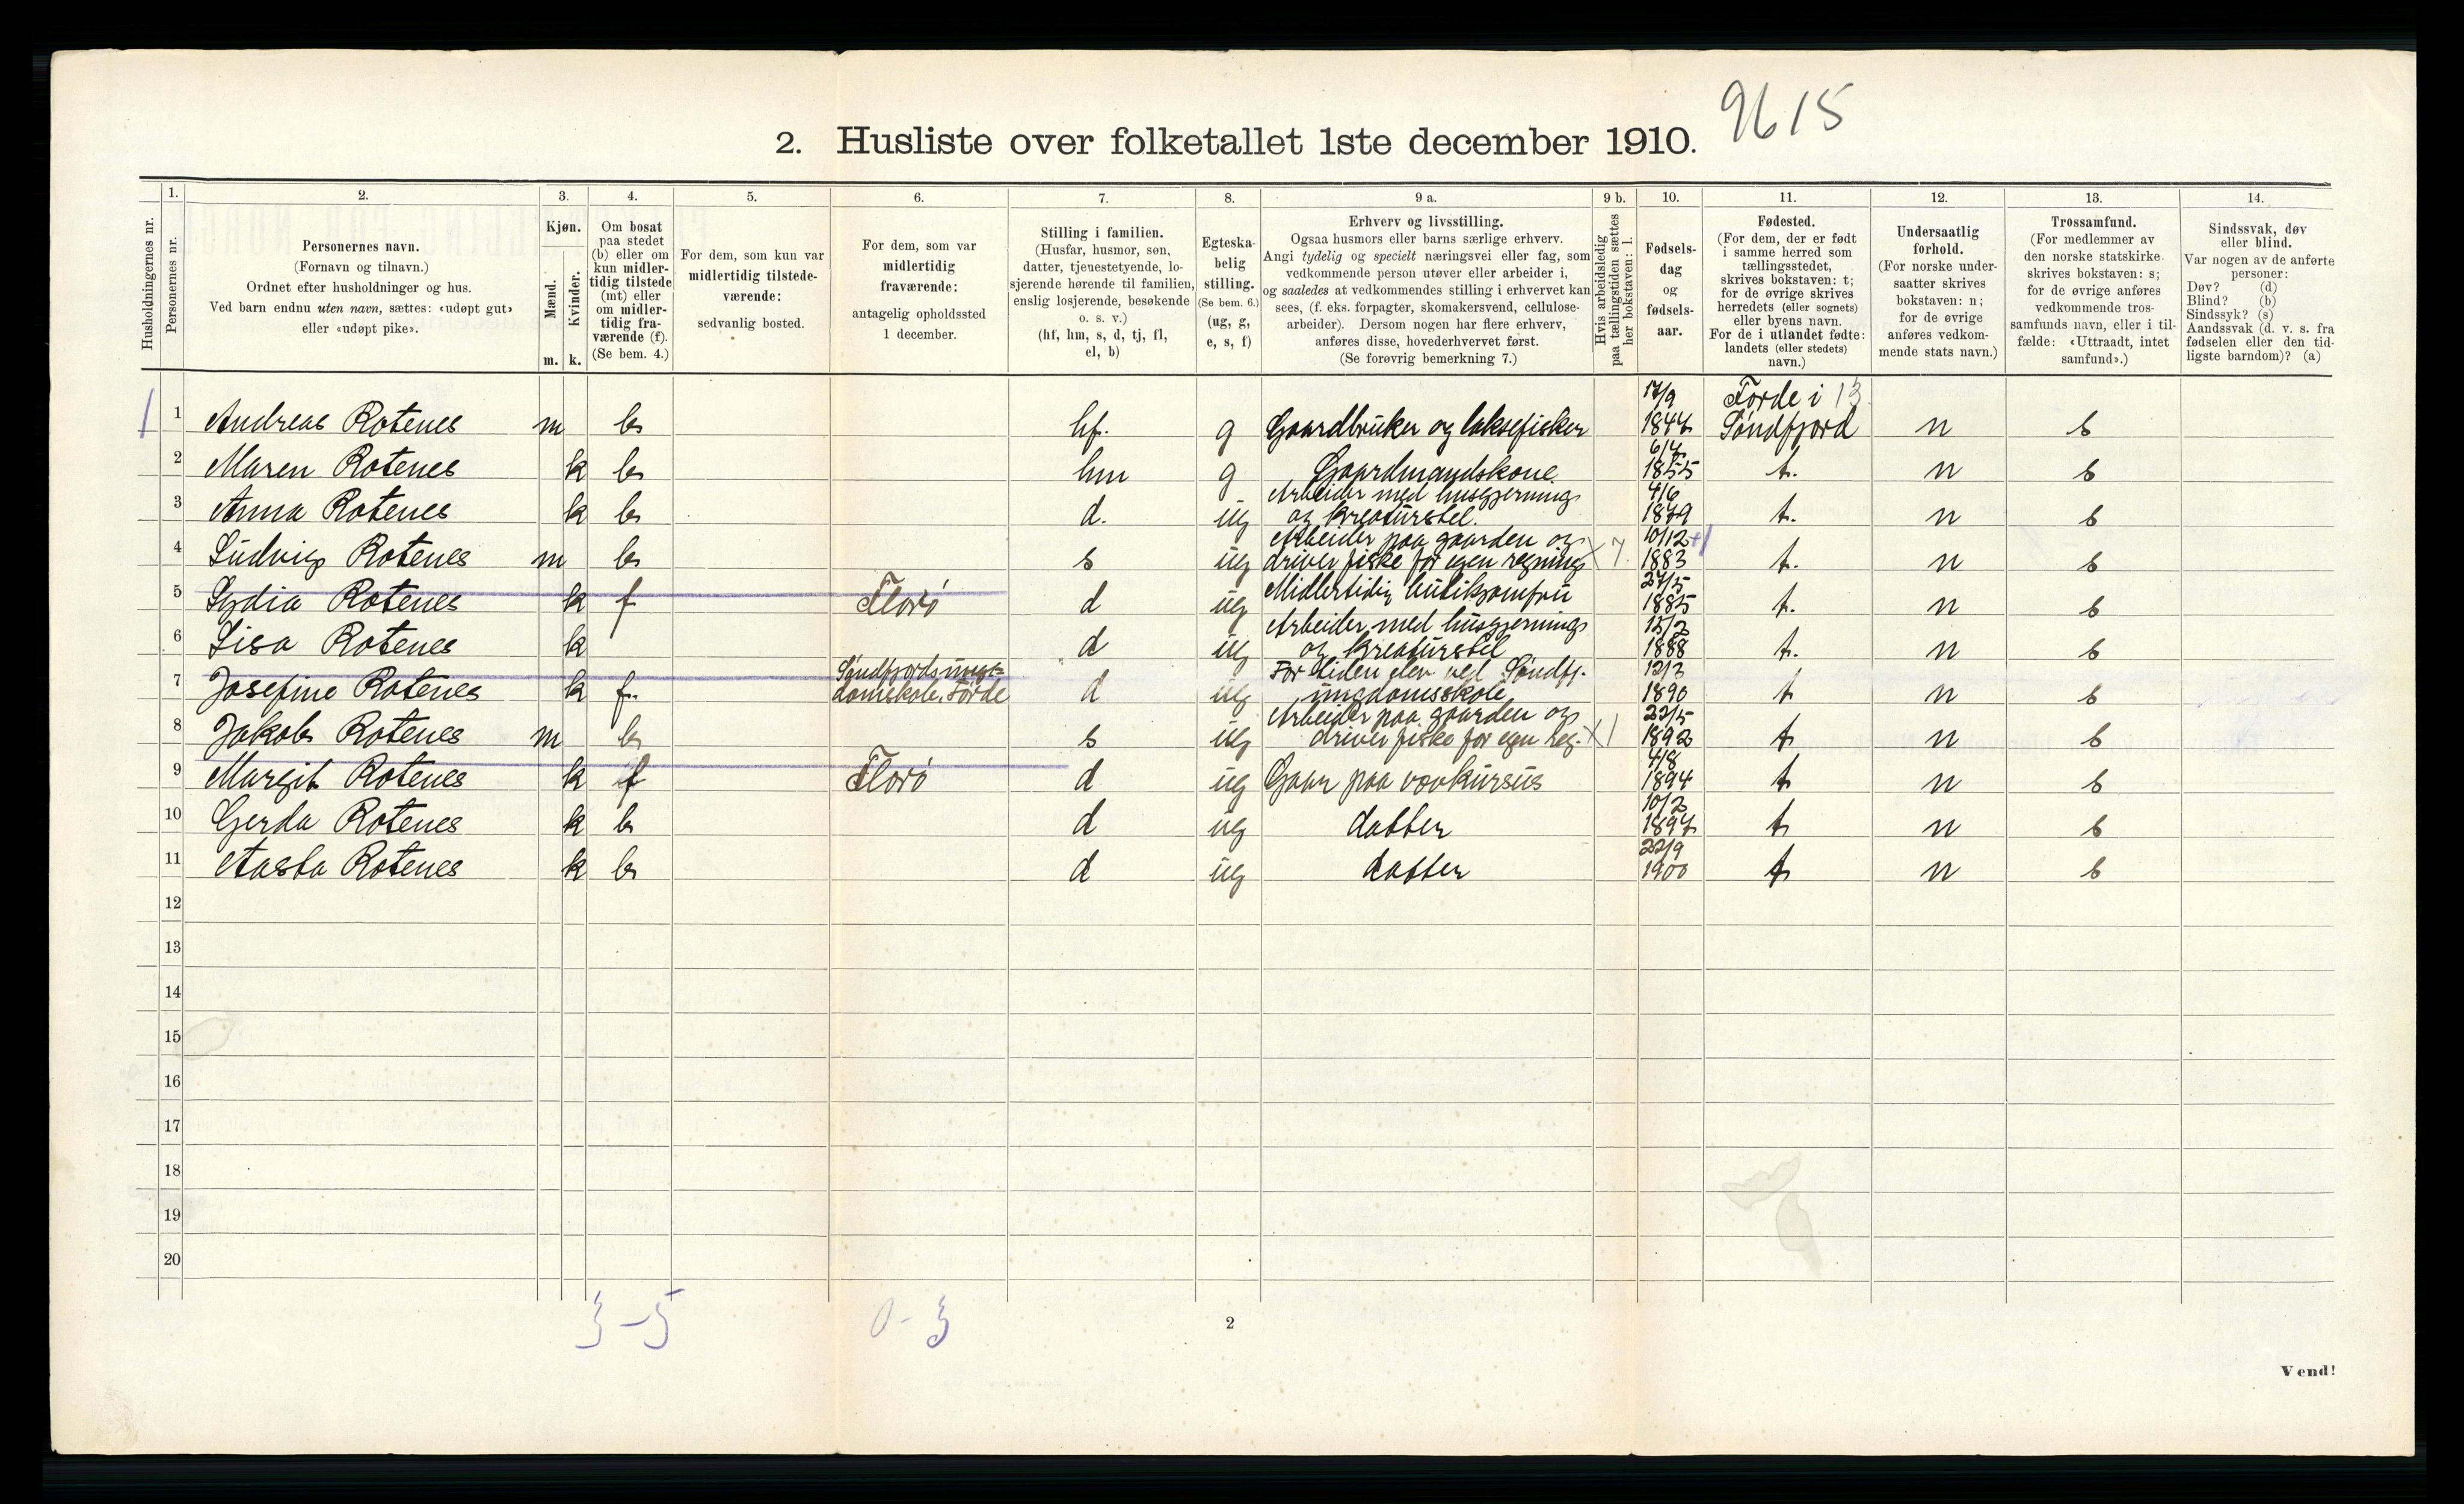 9615
2. Husliste over folketallet 1ste december 1910.
Husholdningernes nr.
1. Personernes nr.
2. Personernes navn.
(Fornavn og tilnavn.)
Ordnet efter husholdninger og hus.
Ved barn endnu uten navn, sættes: «udøpt gut»
eller «udøpt pike».
3. Kjøn.
Mænd. m.
Kvinder. k.
4. Om bosat
paa stedet
(b) eller om
kun midler-
tidig tilstede
(mt) eller
om midler-
tidig fra-
værende (f).
(Se bem. 4.)
5. For dem, som kun var
midlertidig tilstede-
værende:
sedvanlig bosted.
6. For dem, som var
midlertidig
fraværende:
antagelig opholdssted
1 december.
7. Stilling i familien.
(Husfar, husmor, søn,
datter, tjenestetyende, lo-
sjerende hørende til familien,
enslig losjerende, besøkende
o. s. v.)
(hf, hm, s, d, tj, fl,
el, b)
8. Egteska-
belig
stilling.
(Se bem. 6.)
(ug, g,
e, s, f)
9 a. Erhverv og livsstilling.
Ogsaa husmors eller barns særlige erhverv.
Angi tydelig og specielt næringsvei eller fag, som
vedkommende person utøver eller arbeider i,
og saaledes at vedkommendes stilling i erhvervet kan
sees, (f. eks. forpagter, skomakersvend, cellulose-
arbeider). Dersom nogen har flere erhverv,
anføres disse, hovederhvervet først.
(Se forøvrig bemerkning 7.)
9 b. Hvis arbeidsledig
paa tællingstiden sættes
her bokstaven: l.
10. Fødsels-
dag
og
fødsels-
aar.
11. Fødested.
(For dem, der er født
i samme herred som
tællingsstedet,
skrives bokstaven: t;
for de øvrige skrives
herredets (eller sognets)
eller byens navn.
For de i utlandet fødte:
landets (eller stedets)
navn.)
12. Undersaatlig
forhold.
(For norske under-
saatter skrives
bokstaven: n;
for de øvrige
anføres vedkom-
mende stats navn.)
13. Trossamfund.
(For medlemmer av
den norske statskirke
skrives bokstaven: s;
for de øvrige anføres
vedkommende tros-
samfunds navn, eller i til-
fælde: «Uttraadt, intet
samfund».)
14. Sindssvak, døv
eller blind.
Var nogen av de anførte
personer:
Døv? (d)
Blind? (b)
Sindssyk? (s)
Aandssvak (d. v. s. fra
fødselen eller den tid-
ligste barndom)? (a)
1 1 Andreas Rotenes m b hf. g Gaardbruker og laksefisker 17/9 1847 Førde i 13 Søndfjord n s
2 Maren Rotenes k b hm g Gaardmandskone 6/4 1855 t. n s
3 Anna Rotenes k b d. ug Arbeider med husgjerning og kreaturstel. 4/6 1879 t. n s
4 Ludvig Rotenes m b s ug Arbeider paa gaarden og driver fiske for egen regning x 7. 10/12 1883 t. n s
5 Lydia Rotenes k f Florø d ug Midlertidig butikjomfru 27/5 1885 t. n s
6 Lisa Rotenes k d ug Arbeider med husgjerning og kreaturstel 15/2 1888 t. n s
7 Josefine Rotenes k f. Søndfjords ungdomskole, Førde d ug For tiden elev ved Søndfj. ungdomsskole 12/3 1890 t n s
8 Jakob Rotenes m b s ug Arbeider paa gaarden og driver fiske for egen reg. x 1 22/5 1892 t n s
9 Margit Rotenes k f Florø d ug Gaar paa vævkursus 4/8 1894 t n s
10 Gerda Rotenes k b d ug datter 10/2 1897 t n s
11 Aasta Rotenes k b d ug datter 22/9 1900 t n s
12
13
14
15
16
17
18
19
20
3-5
0-3
2
Vend!